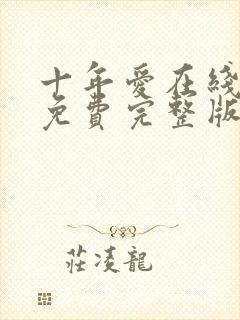 十年愛在綫
免費完整版
莊凌龍